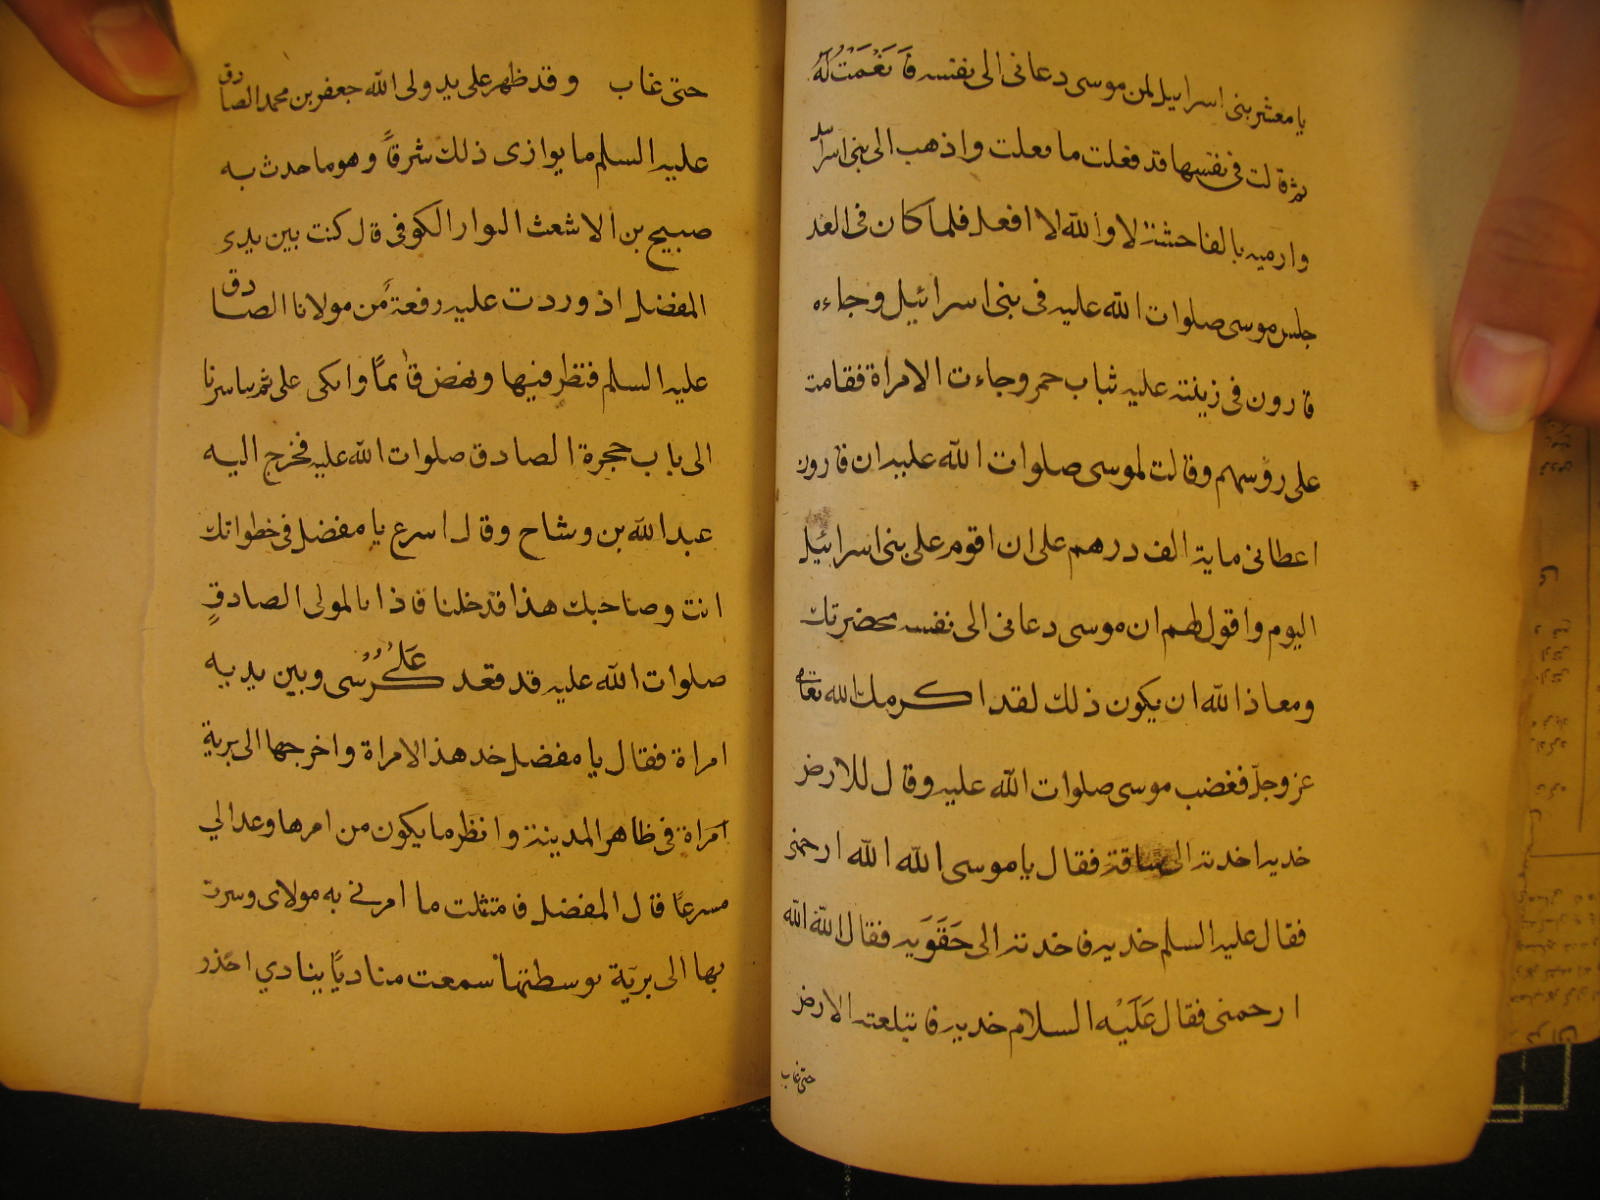 يا معشر بنى اسراييل لمن موسى دعانى الى نفسه فَاَنْعَمْتُ لَهُ
ثم قالت فى نفسها قد فعلت ما فعلت واذهب الى بنى اسراييل
وارميه بالفاحشة لا والله لا افعل فلما كان فى الغد
جلس موسى صلوات الله عليه فى بنى اسرائيل وجاءه
قارون فى زينته عليه ثياب حمر وجاءت الامراة فقامت
على رؤسهم وقالت لموسى صلوات الله عليه ان قارون
اعطانى ماية الف درهم على ان اقوم على بنى اسرائيل
اليوم واقول لهم ان موسى دعانى الى نفسه بحضرتك
ومعاذ الله ان يكون ذلك لقد اكرمك الله تعالى
عز وجل فغضب موسى صلوات الله عليه وقال للارض
خديه اخدته الى ساقه فقال يا موسى الله الله ارحمنى
فقال عليه السلم خديه فاخدته الى حَقَوَيه فقال الله الله
ارحمنى فقال عَلَيْه السلام خديه فابتلعته الارض
حتى غاب
حتى غاب وقد ظهر على يد ولى الله جعفر بن محمد الصادق
عليه السلم ما يوازى ذلك شرقاً وهو ما حدث به
صبيح بن الاشعث الكوفى قال كنت بين يدى
المفضل اذ وردت عليه رقعة من مولانا الصادق
عليه السلم فنظر فيها ونهض قائماً واتكى على ثم سرنا
الى باب حجرة الصادق صلوات الله عليه فخرج اليه
عبد الله بن وشاح وقال اسرع يا مفضل فى خطواتك
انت وصاحبك هذا فدخلنا فاذا بالمولى الصادق
صلوات الله عليه قد قعد عَلى كُرْسى وبين يديه
امراة فقال يا مفضل خد هذ الامراة واخرجها الى برية
فى ظاهر المدينة وانظر ما يكون من امرها وعد الي
مسرعًا قال المفضل فامتثلت ما امرني به مولاى وسرت
بها الى برية توسطتها سمعت مناديًا ينادي احذر